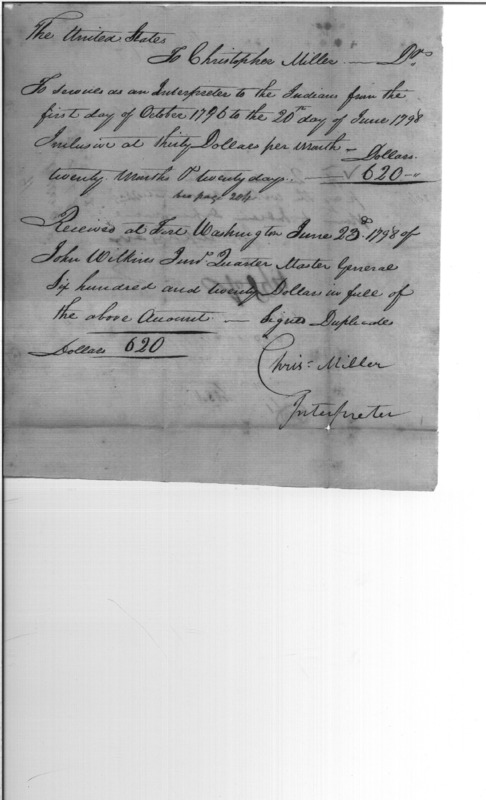 The United States
To Christopher Miller — Dr
To services as an Interpreter to the Indians from the
first day of October 1796 to the 20th day of June 1798
Inclusive at thirty Dollars per month — Dollars
twenty Months & twenty days — 620
see page 204
Received at Fort Washington June 23d 1798 of
John Wilkins Junr Quarter Master General
Six hundred and twenty Dollars in full of
the above Amount — Signed Duplicates
Dollars 620
Chris= Miller
Interpreter